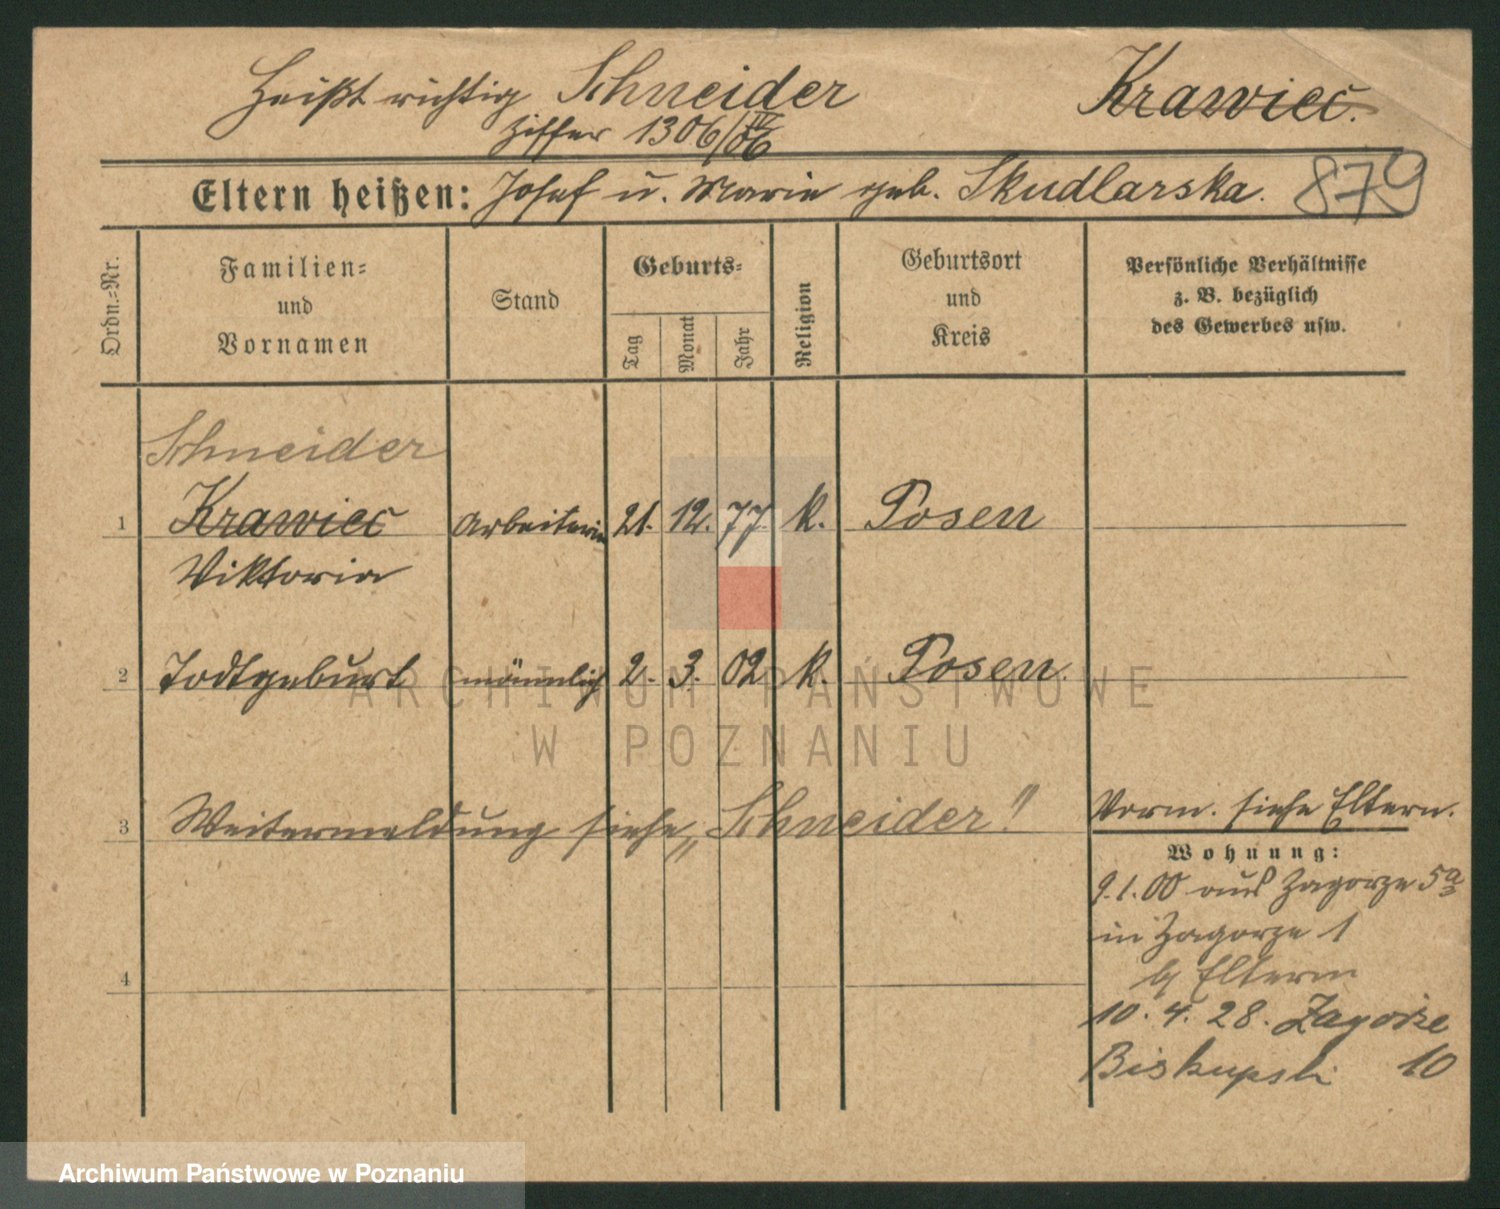 Heißt richtig Schneider Krawiec.
Ziffer 1306/IV 06
Eltern heißen: Josef u. Marie geb. Skudlarska. 879
Ordn.-Nr.
Familien-
und
Vornamen
Stand
Geburts-
Tag
Monat
Jahr
Religion
Geburtsort
und
Kreis
Persönliche Verhältnisse
z. B. bezüglich
des Gewerbes usw.
Schneider
1 Krawiec Arbeiterin 21. 12. 77. k. Posen
Viktoria
2 Todtgeburt männlich 2. 3. 02 k. Posen.
3 Weitermeldung siehe „Schneider"!
Vorm. siehe Eltern.
Wohnung:
9.1.00 aus Zagorze 5a
in Zagorze 1
4
b/ Eltern
10. 4. 28. Zagorze
Biskupski 10
ARCHIWUM PAŃSTWOWE
W POZNANIU
Archiwum Państwowe w Poznaniu